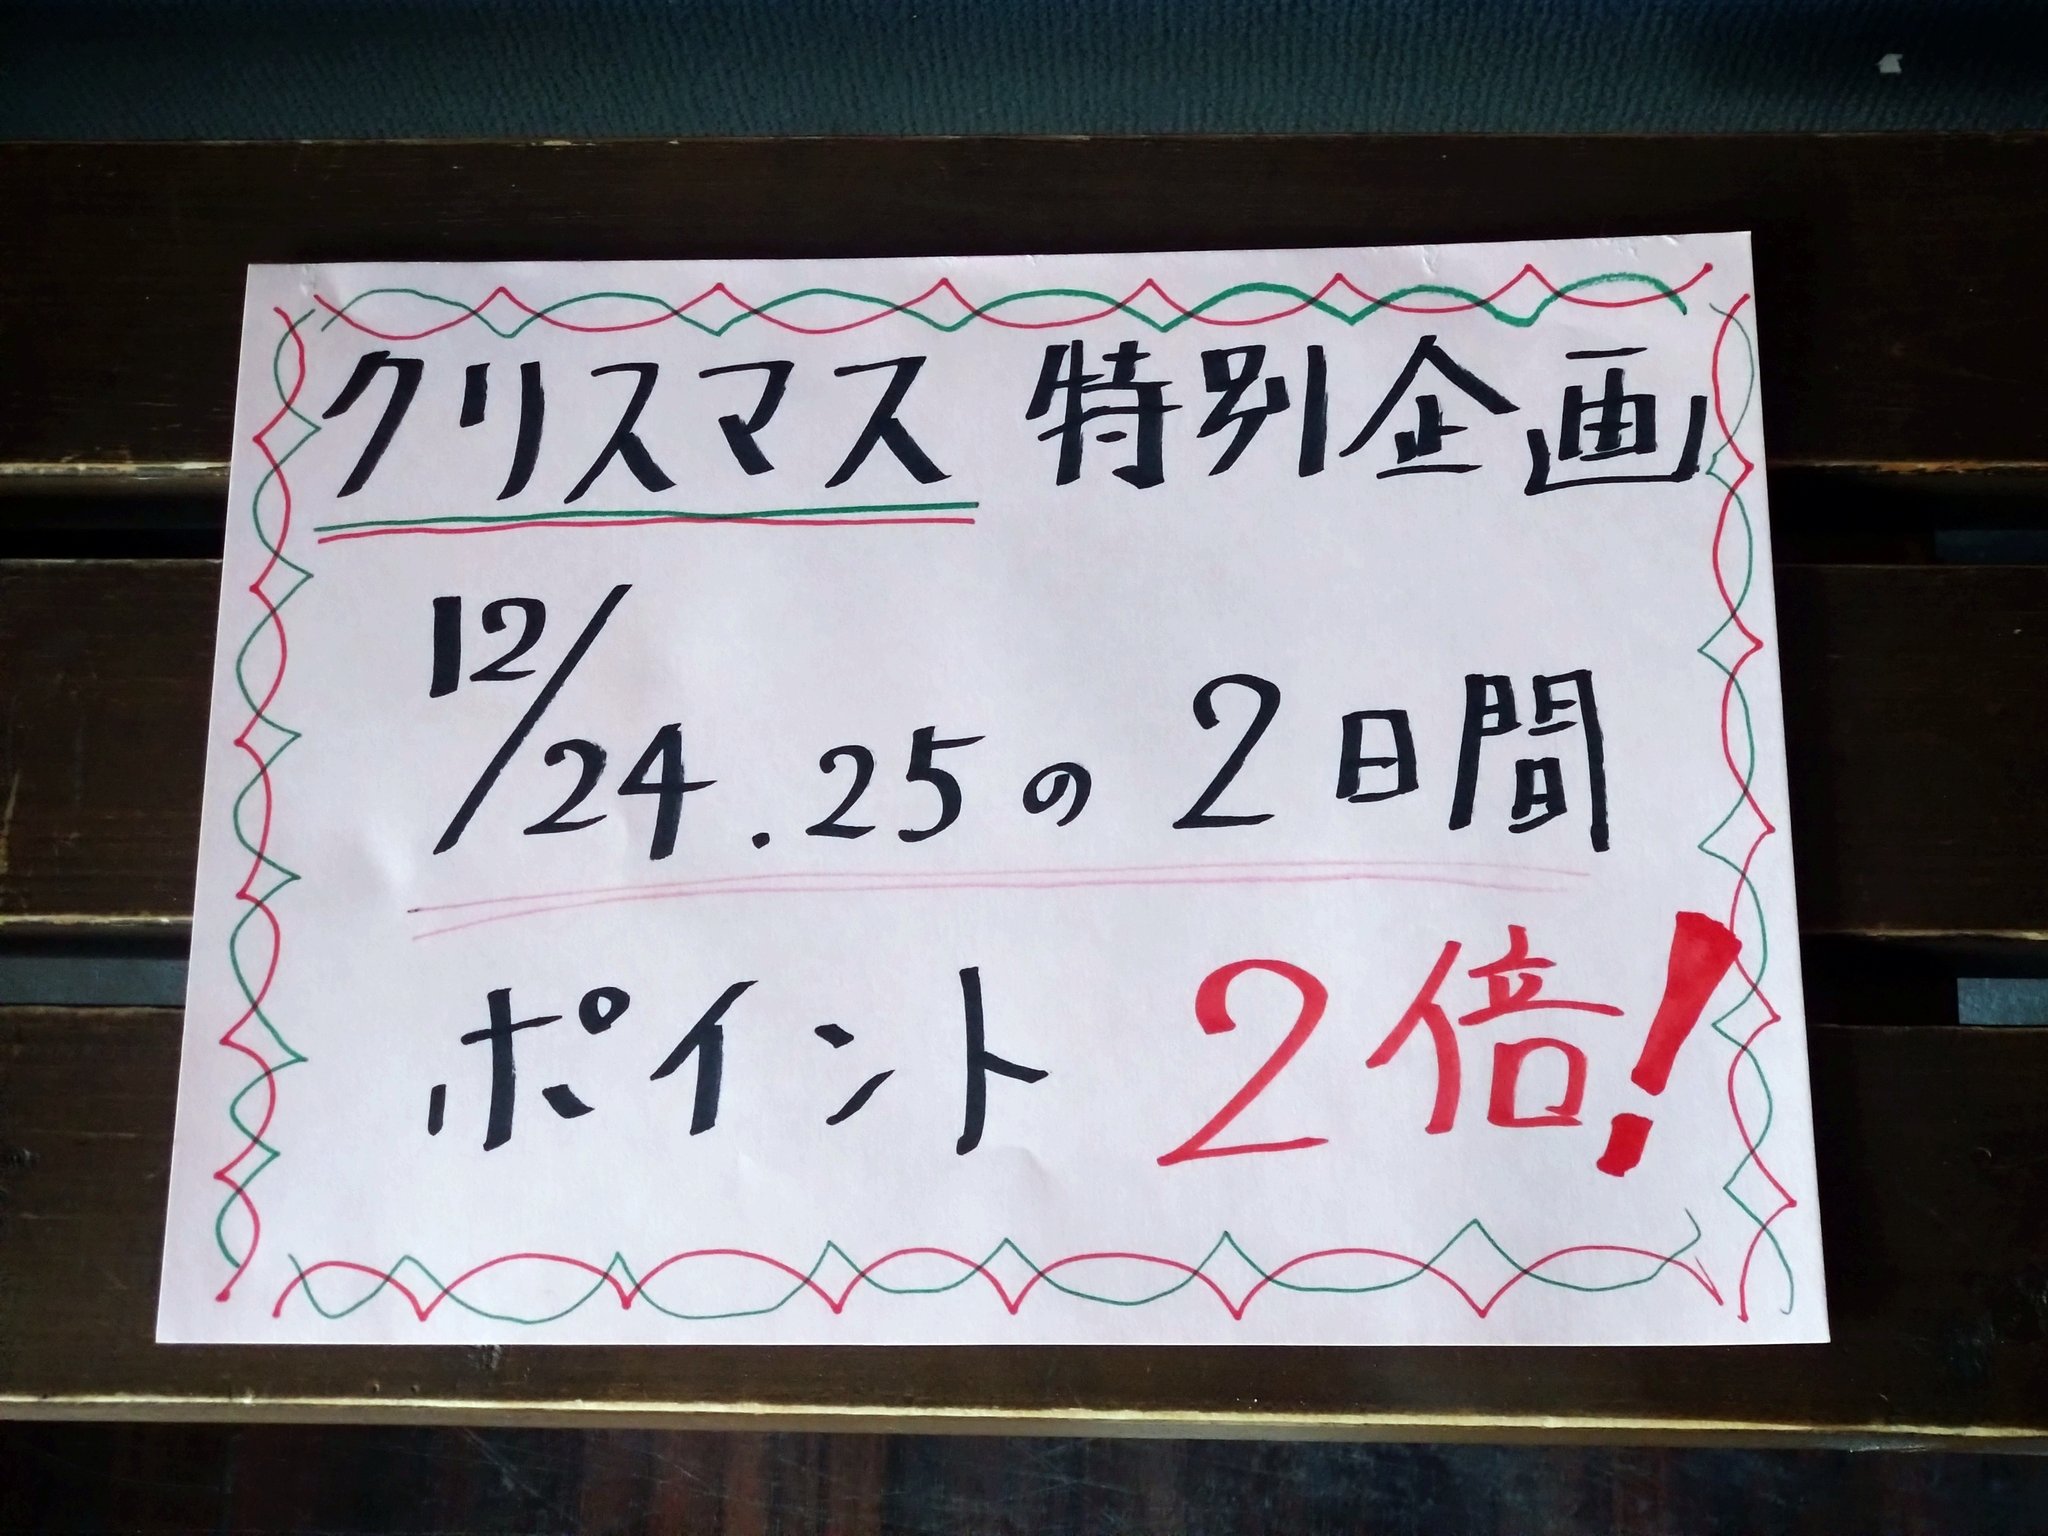 クリスマス 特別企画
12/24.25の2日間
ポイント 2倍!